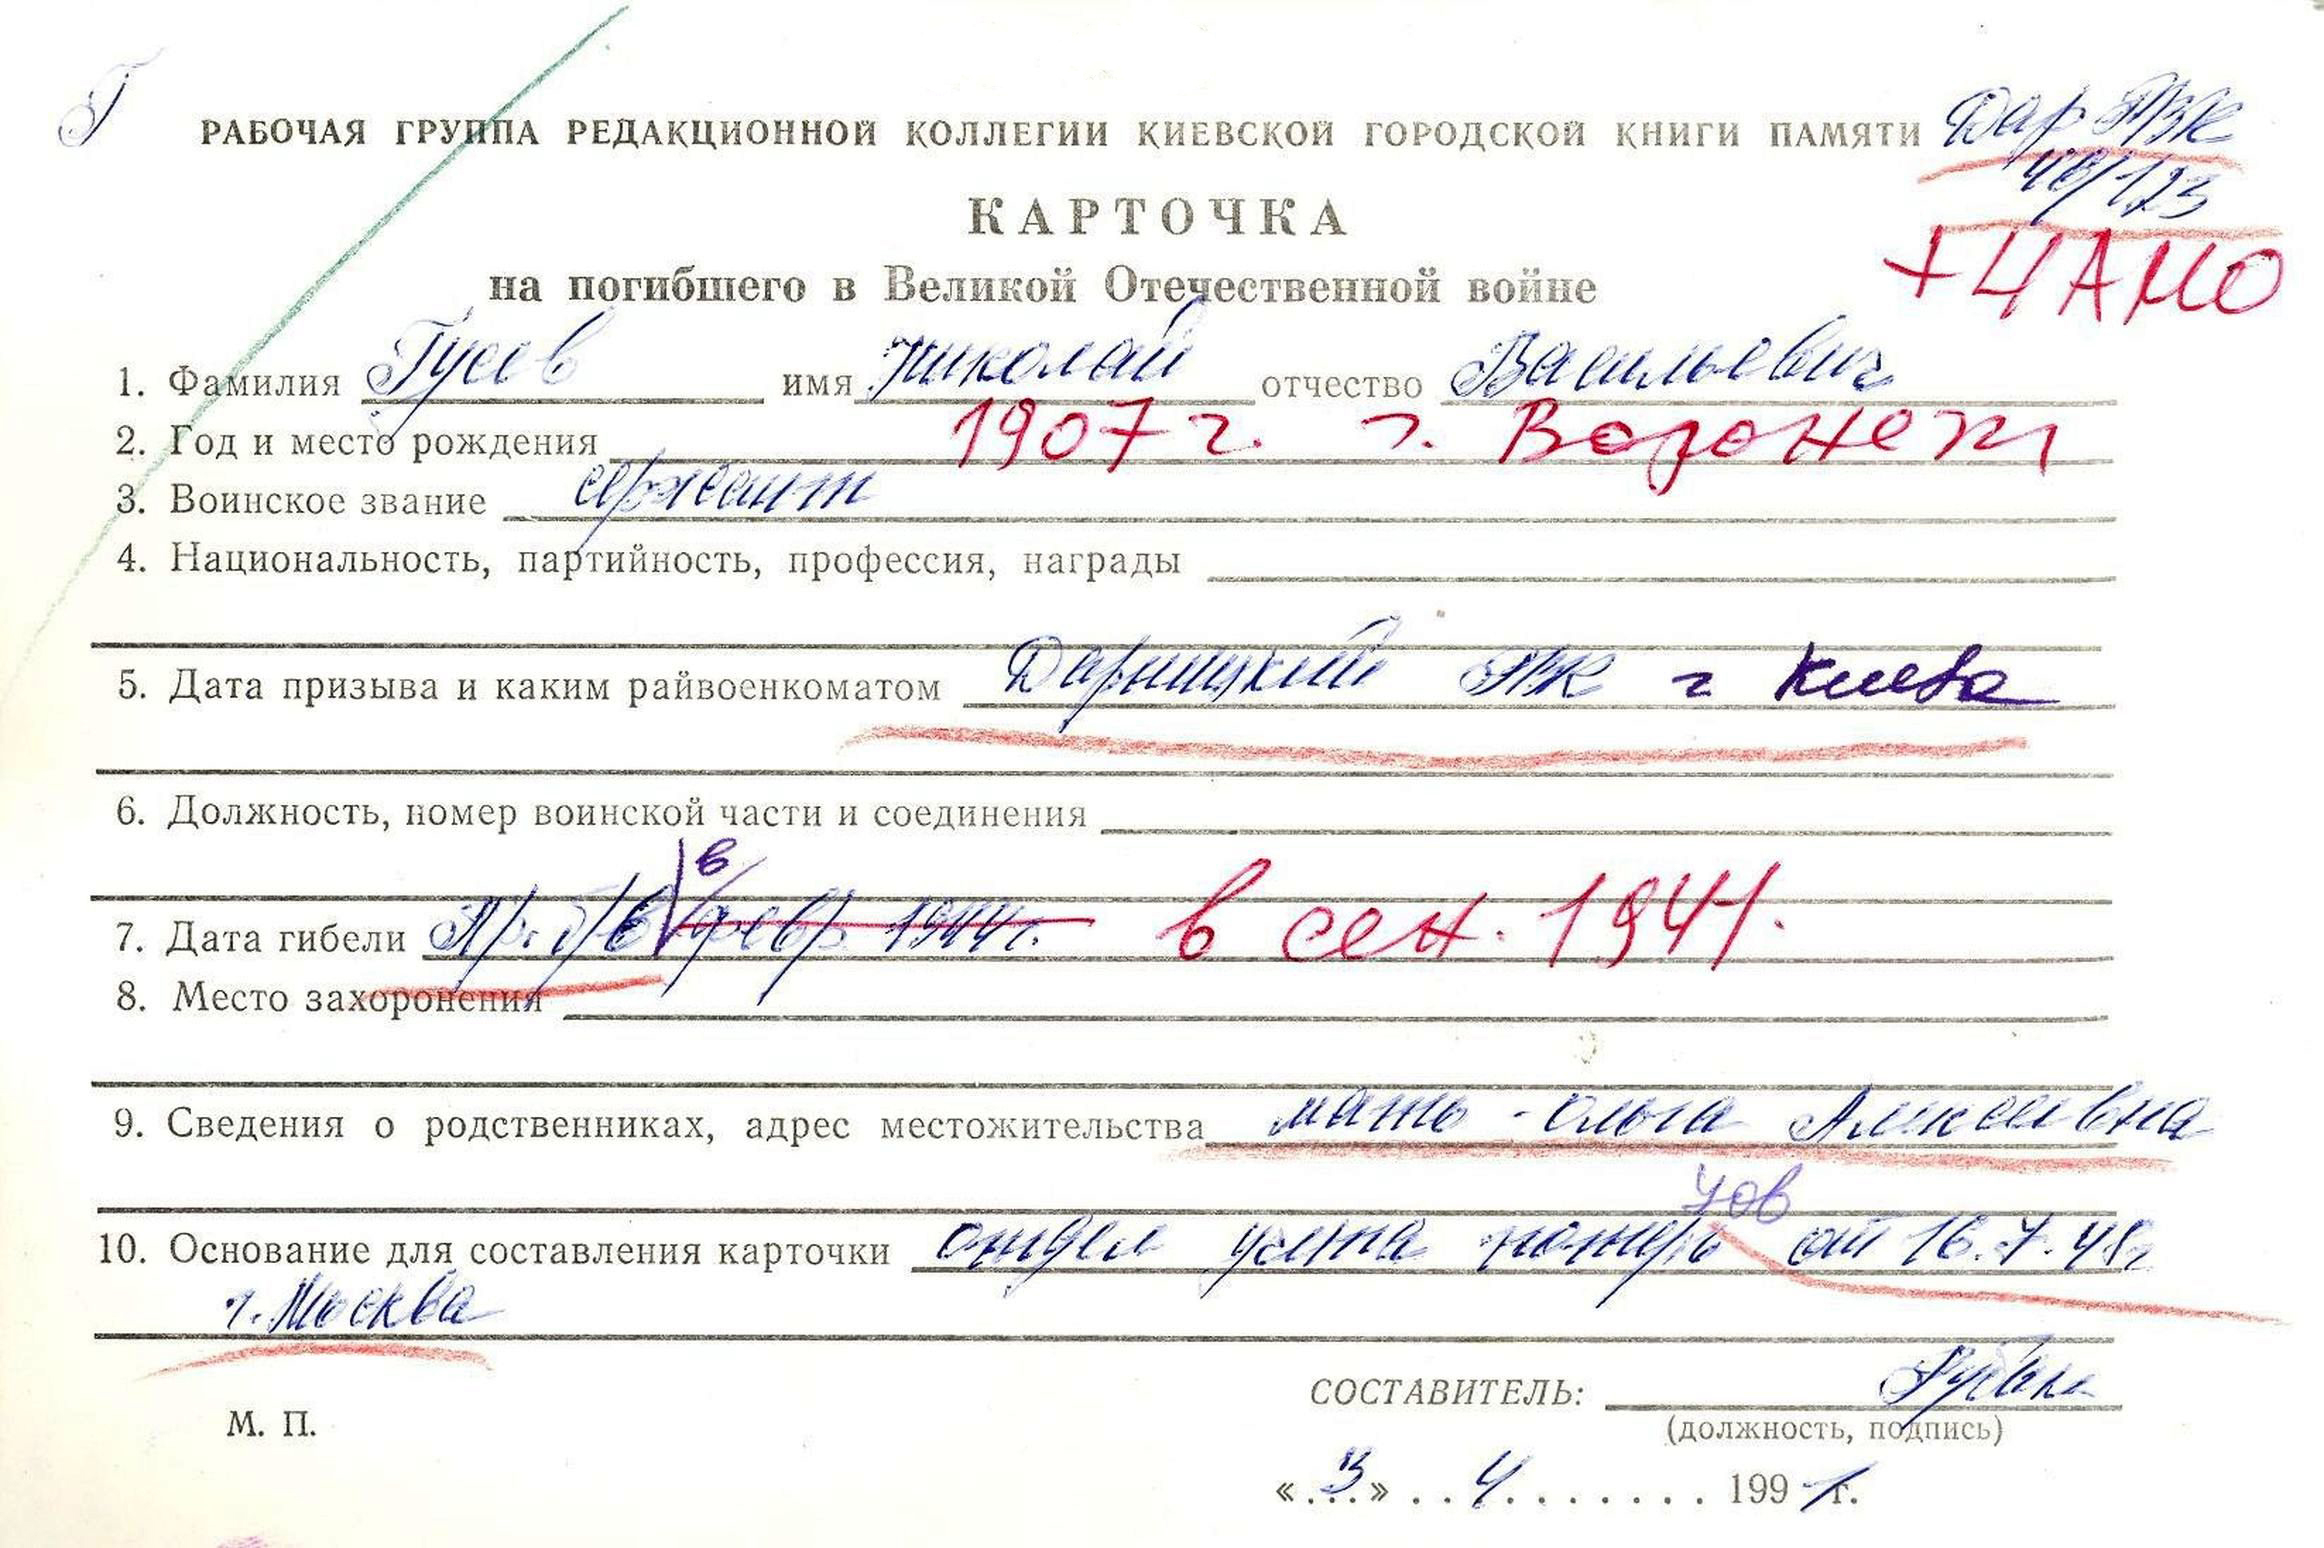 Г
РАБОЧАЯ ГРУППА РЕДАКЦИОННОЙ КОЛЛЕГИИ КИЕВСКОЙ ГОРОДСКОЙ КНИГИ ПАМЯТИ Дар РВК
/123
КАРТОЧКА
+ ЦАМО
на погибшего в Великой Отечественной войне
1. Фамилия Гусев имя Николай отчество Васильевич
2. Год и место рождения 1907 г. г. Воронеж
3. Воинское звание сержант
4. Национальность, партийность, профессия, награды
5. Дата призыва и каким райвоенкоматом Дарницкий РВК г Киева
6. Должность, номер воинской части и соединения
в
7. Дата гибели Пр. б/в февр 1944г. в сен. 1941.
8. Место захоронения
9. Сведения о родственниках, адрес местожительства мать - Ольга Алексеевна
10. Основание для составления карточки отдел учета потерь от 16.7.48г
г. Москва
СОСТАВИТЕЛЬ:
(должность, подпись)
М. П.
«3» 4 1991г.